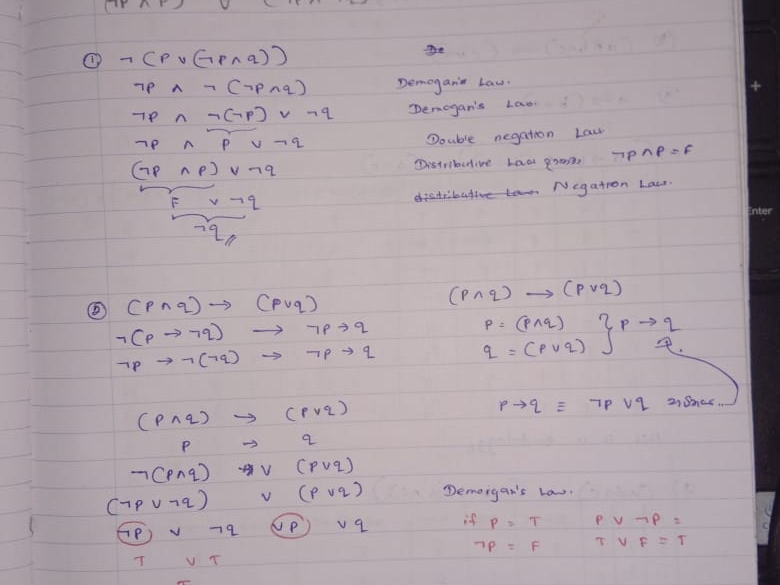 ① ¬(P ∨ (¬P ∧ q)) De
¬P ∧ ¬(¬P ∧ q) Demogan's Law.
¬P ∧ ¬(¬P) ∨ ¬q Demogan's Law.
¬P ∧ P ∨ ¬q Double negation Law
(¬P ∧ P) ∨ ¬q Distributive Law ¬P ∧ P = F
F ∨ ¬q distributive Law. Negation Law.
¬q //
② (P ∧ q) → (P ∨ q) (P ∧ q) → (P ∨ q)
¬(P → ¬q) → ¬P → q P = (P ∧ q) } P → q
¬P → ¬(¬q) → ¬P → q q = (P ∨ q)
(P ∧ q) → (P ∨ q) P → q ≡ ¬P ∨ q
P → q
¬(P ∧ q) ∨ (P ∨ q)
(¬P ∨ ¬q) ∨ (P ∨ q) Demorgan's Law.
¬P ∨ ¬q ∨ P ∨ q if P = T P ∨ ¬P =
T ∨ T ¬P = F T ∨ F = T
T
Enter